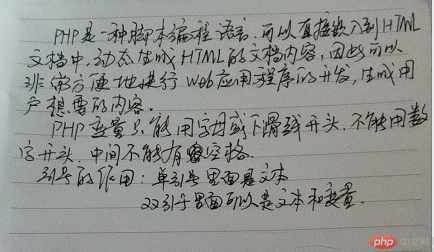 PHP是一种脚本编程语言,可以直接嵌入到HTML
文档中,动态生成HTML的文档内容,因此可以
非常方便地进行Web应用程序的开发,生成用
户想要的内容。
PHP变量只能用字母或下滑线开头,不能用数
字开头,中间不能有空格.
引号的作用:单引号里面是文本
双引号里面可以是文本和变量.
php